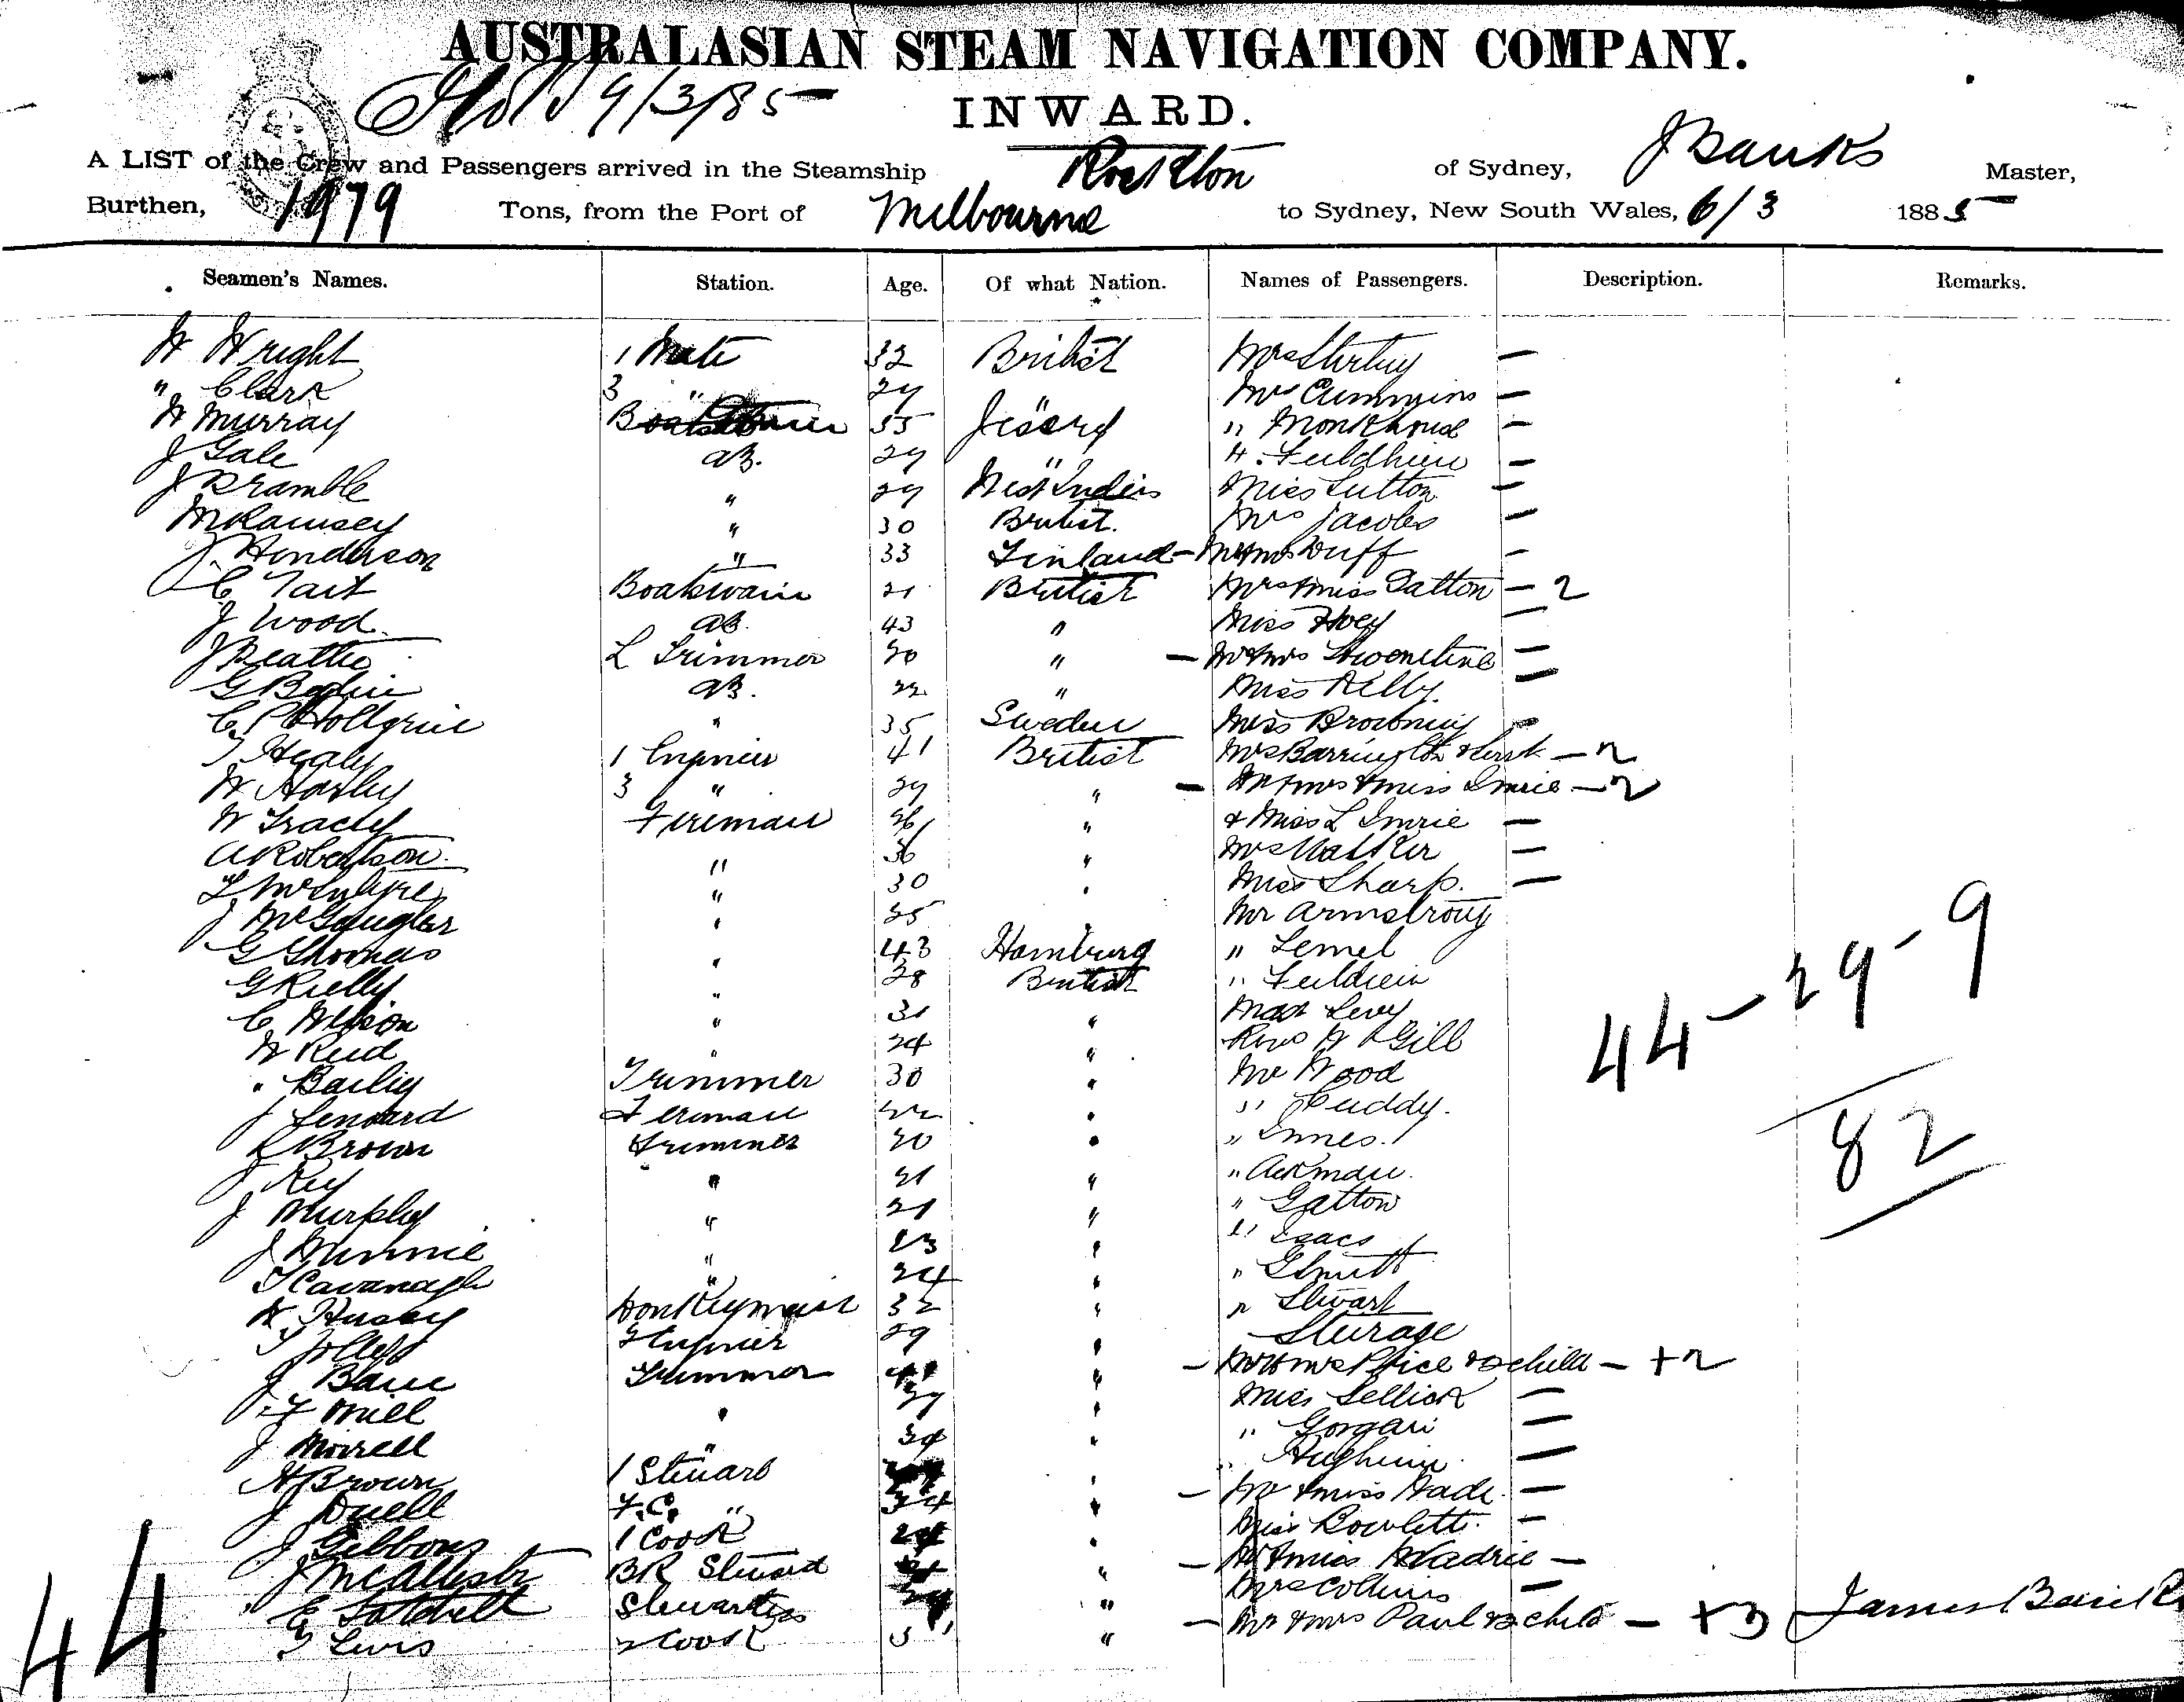 AUSTRALASIAN STEAM NAVIGATION COMPANY.
9/3/85
INWARD.
A LIST of the Crew and Passengers arrived in the Steamship Rockton of Sydney, J Banks Master,
Burthen, 1979 Tons, from the Port of Melbourne to Sydney, New South Wales, 6/3 1885
Seamen's Names. Station. Age. Of what Nation. Names of Passengers. Description. Remarks.
W Wright 1 Mate 32 British Mrs Stirling —
" Clark 3 " 29 Mrs Cummins —
W Murray 55 Jersey " Monkhouse —
J Gale AB. 29 " —
J Bramble " 29 West Indies Miss Sutton —
M Ramsey " 30 British. Mrs Jacobs —
J. Henderson " 33 Finland — Mr & Mrs Duff —
C Tait Boatswain 21 British Mrs & Miss Gatton — 2
J Wood AB. 43 " Miss Hoey —
J Beattie L Trimmer 20 " — Mr & Mrs —
G AB. 22 " Miss Kelly. —
C P Holtgrin " 35 Sweden Miss Browning —
T Healy 1 Engineer 41 British Mrs Barrington & — 2
W 3 " 29 " — Mr & Mrs & Miss Imrie — 2
W Tracey Fireman 26 " & Miss L Imrie —
A Robertson " 36 " Mrs Walker —
T McIntyre " 30 " Miss Sharp. —
J " 25 Mr Armstrong
G Thomas " 43 Hamburg " Lemel
G Rielly " 28 British "
C Wilson " 31 " Max Levy
W Reid " 24 " Rev W Gill
" Bailey Trimmer 30 " Mr Wood
J Lennard Fireman 22 " " Cuddy.
R Brown Trimmer 20 " " Innes.
J Key " 21 " " Ackman.
J Murphy " 21 " " Gatton
J " 23 " " Isaacs
T Cavanagh " 24 " "
W Husey Donkeyman 32 " " Stewart
T Jolley 2 Engineer 29 " Steerage
J Trimmer " — Mr & Mrs Price & child — + 2
Mill " " Miss Sellick —
J Morrell " " " —
H Brown 1 Steward " " —
J Duell F.C. " 34 " — Mr & Miss Wade —
J Gibbons 1 Cook " Miss Rowlett. —
J McAllister BR Steward " — Mr & Miss —
E Satchell Stewardess " Mrs Collins —
T Lewis 2 Cook " — Mr & Mrs Paul & 3 child — + 3 James Banks
44 – 29 – 9
82
44